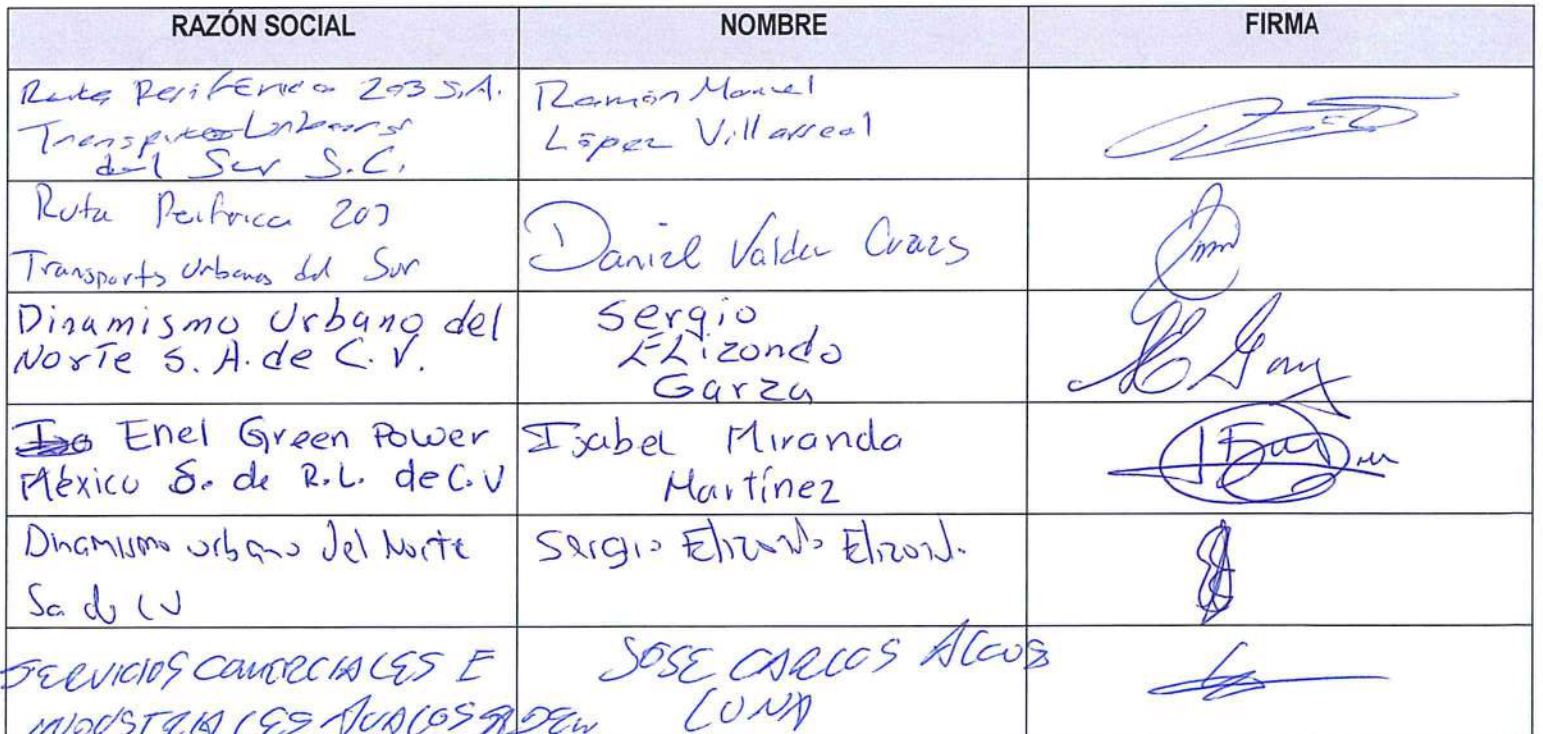 RAZÓN SOCIAL NOMBRE FIRMA
Ruta Periférica 203 S.A.
Transportes Urbanos
del Sur S.C.
Ramón Manuel
López Villarreal
Ruta Periférica 203
Transportes Urbanos del Sur
Daniel Valdez
Dinamismo Urbano del
Norte S. A. de C. V.
Sergio
Elizondo
Garza
Enel Green Power
México S. de R.L. de C.V
Isabel Miranda
Martínez
Dinamismo urbano del Norte
Sa de CV
Sergio Elizondo Elizondo
SERVICIOS COMERCIALES E
INDUSTRIALES
JOSE CARLOS
LUNA